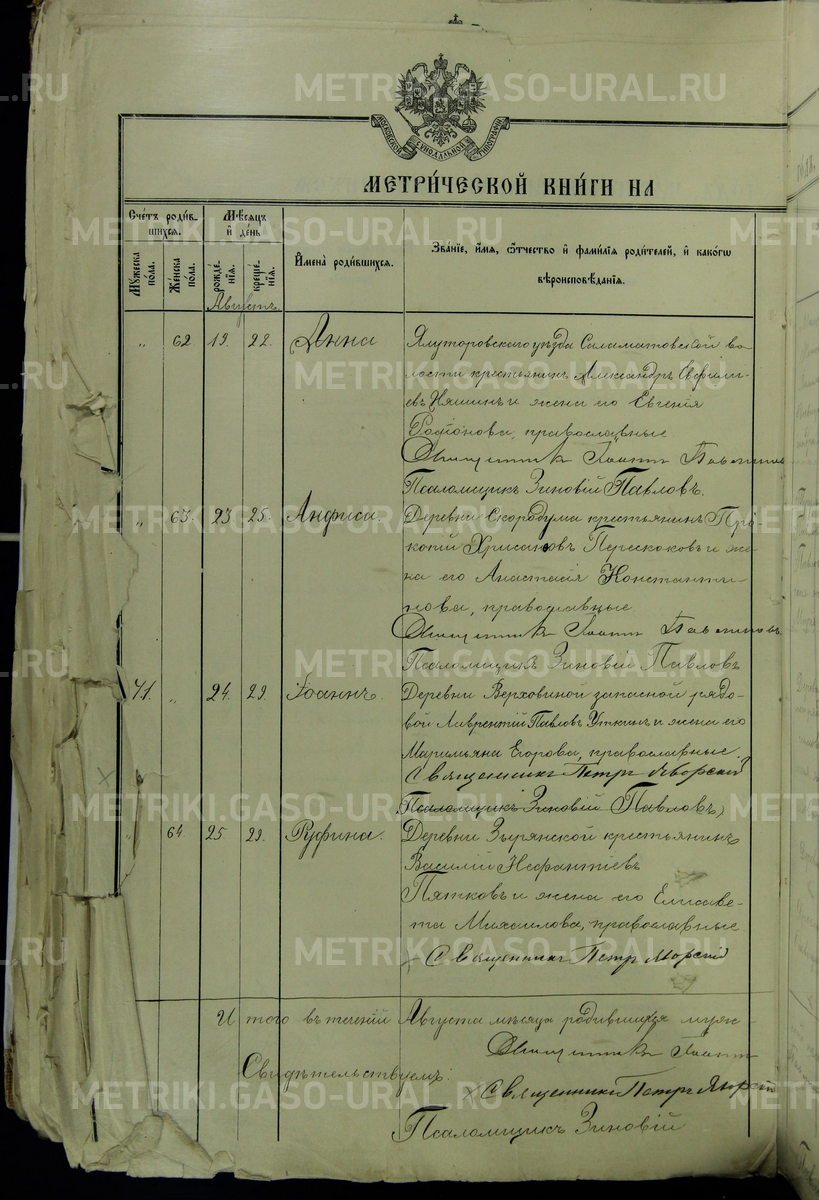 METRIKI.GASO-URAL.RU
МОСКОВСКОЙ СѴНОДАЛЬНОЙ ТИПОГРАФІИ
МЕТРИ́ЧЕСКОЙ КНИ́ГИ НА
Сче́тъ роди́в-
шихся.
Мѣ́сяцъ
и҆ де́нь
Му́жеска по́ла.
Же́нска по́ла.
рожде́нїя.
креще́нїя.
И҆мена̀ роди́вшихся.
Зва́нїе, и҆́мя, ѻ҆́тчество и҆ фами́лїя роди́телей, и҆ како́гѡ
вѣроисповѣ́данїя.
Августъ
„ 62 19. 22. Анна
Ялуторовского уѣзда Саламатовской во-
лости крестьянинъ Александръ
Няшинъ и жена его Евгенія
Родіонова, православные
Псаломщикъ Зиновій Павловъ.
„ 63. 23 25. Анфиса.
Деревни Скородума крестьянинъ Про-
копій Хрисанѳовъ Перескоковъ и же-
на его Анастасія Константи-
нова, православные
Псаломщикъ Зиновій Павловъ
41. „ 24. 29. Іоаннъ.
Деревни Верховиной запасной рядо-
вой Лаврентій Павловъ Уткинъ и жена его
Маримьяна Егорова, православные.
Священникъ Петръ Яворскій
Псаломщикъ Зиновій Павловъ
„ 64. 25 29. Руфина.
Деревни Зырянской крестьянинъ
Василій Неофантіевъ
Пятковъ и жена его Елисаве-
та Михаилова, православные
Священникъ Петръ Яворскій
Итого въ теченіи Августа мѣсяца родившихся муж
Свидѣтельствуемъ:
Священникъ Петръ Яворскій
Псаломщикъ Зиновій